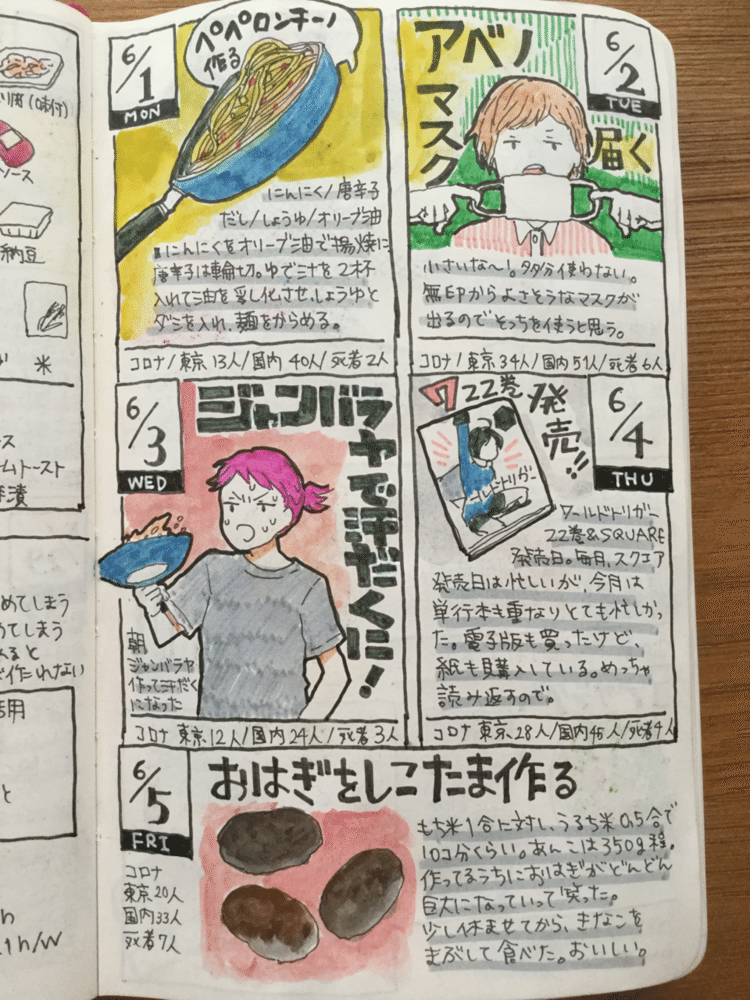 り肉(味付)
ソース
納豆
米
ース
ームトースト
漬
めてしまう
めてしまう
ると
ど作れない
活用
と
1h/W
6/1
MON
ペペロンチーノ
作る
にんにく/唐辛子
だし/しょうゆ/オリーブ油
にんにくをオリーブ油で揚焼に
唐辛子は輪切。ゆで汁を2杯
入れて油を乳化させ、しょうゆと
ダシを入れ、麺をからめる。
コロナ/東京13人/国内40人/死者2人
6/2
TUE
アベノ
マスク
届く
小さいな〜。多分使わない。
無印からよさそうなマスクが
出るのでそっちを使うと思う。
コロナ/東京34人/国内51人/死者6人
6/3
WED
ジャンバラ
ヤで汗だくに!
朝
ジャンバラヤ
作って汗だく
になった
コロナ 東京12人/国内24人/死者3人
6/4
THU
ワ22巻
発売!!
ワールドトリガー
ワールドトリガー
22巻&SQUARE
発売日。毎月、スクエア
発売日は忙しいが、今月は
単行本も重なりとても忙しかっ
た。電子版も買ったけど、
紙も購入している。めっちゃ
読み返すので。
コロナ 東京28人/国内45人/死者4人
6/5
FRI
おはぎをしこたま作る
コロナ
東京20人
国内33人
死者7人
もち米1合に対し、うるち米0.5合で
10コ分くらい。あんこは350g程。
作ってるうちにおはぎがどんどん
巨大になっていって笑った。
少し休ませてから、きなこを
まぶして食べた。おいしい。